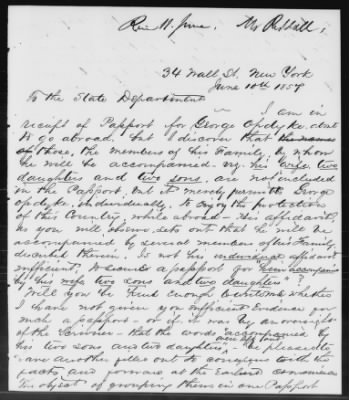 Rec 11. June. Mr Riddall.
34 Wall St. New York
June 10th 1859
To the State Department
I am in
receipt of Passport for George Opdyke, dont
to go abroad, but I discover that
of those, the members of his Family, by whom
he will be accompanied viz. his wife, two
daughters and two sons, are not included
in the Passport, but it merely permits George
Opdyke, individually, to enjoy the protection
of this Country, while abroad – His affidavit,
as you will observe, sets out that he will be
accompanied by several members of his Family,
described therein. Is not his individual affidavit
sufficient, to secure a passport for him accompanied
by his wife two sons and two daughters"?
Will you be kind enough to write me whether
I have not given you sufficient evidence for
such a passport – or if it was by an oversight
of the Scrivener – that the words accompanied by
his two sons and two daughters,
and another filled out to correspond with the
facts and forward at the Earliest convenience
The object of grouping them in one Passport